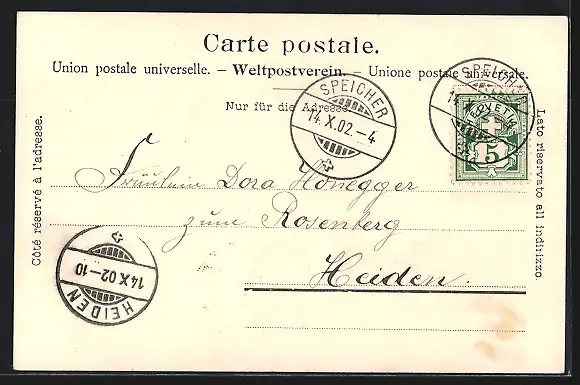 Carte postale.
Union postale universelle. – Weltpostverein. – Unione postale universale.
Nur für die Adresse.
Côté réservé à l'adresse.
Lato riservato all indirizzo.
SPEICHER
14.X.02.–4
SPEICH
14.X.02
HELVETIA
5
Fräulein Dora Honegger
zum Rosenberg
Heiden.
14.X.02–10
HEIDEN